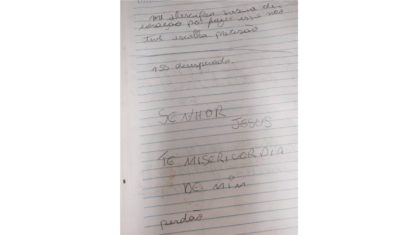 me desculpa mesmo de
coração por fazer isso não
tive escolha preciso
desesperada
SENHOR
JESUS
TE MISERICORDIA
DE MIM
perdão